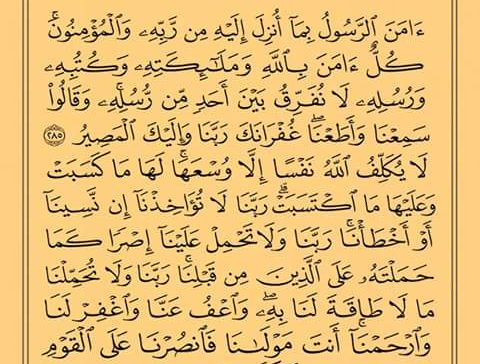 ءَامَنَ ٱلرَّسُولُ بِمَآ أُنزِلَ إِلَيْهِ مِن رَّبِّهِۦ وَٱلْمُؤْمِنُونَۚ
كُلٌّ ءَامَنَ بِٱللَّهِ وَمَلَـٰٓئِكَتِهِۦ وَكُتُبِهِۦ
وَرُسُلِهِۦ لَا نُفَرِّقُ بَيْنَ أَحَدٍ مِّن رُّسُلِهِۦۚ وَقَالُوا۟
سَمِعْنَا وَأَطَعْنَاۖ غُفْرَانَكَ رَبَّنَا وَإِلَيْكَ ٱلْمَصِيرُ ٢٨٥
لَا يُكَلِّفُ ٱللَّهُ نَفْسًا إِلَّا وُسْعَهَاۚ لَهَا مَا كَسَبَتْ
وَعَلَيْهَا مَا ٱكْتَسَبَتْۗ رَبَّنَا لَا تُؤَاخِذْنَآ إِن نَّسِينَآ
أَوْ أَخْطَأْنَاۚ رَبَّنَا وَلَا تَحْمِلْ عَلَيْنَآ إِصْرًا كَمَا
حَمَلْتَهُۥ عَلَى ٱلَّذِينَ مِن قَبْلِنَاۚ رَبَّنَا وَلَا تُحَمِّلْنَا
مَا لَا طَاقَةَ لَنَا بِهِۦۖ وَٱعْفُ عَنَّا وَٱغْفِرْ لَنَا
وَٱرْحَمْنَآۚ أَنتَ مَوْلَىٰنَا فَٱنصُرْنَا عَلَى ٱلْقَوْمِ